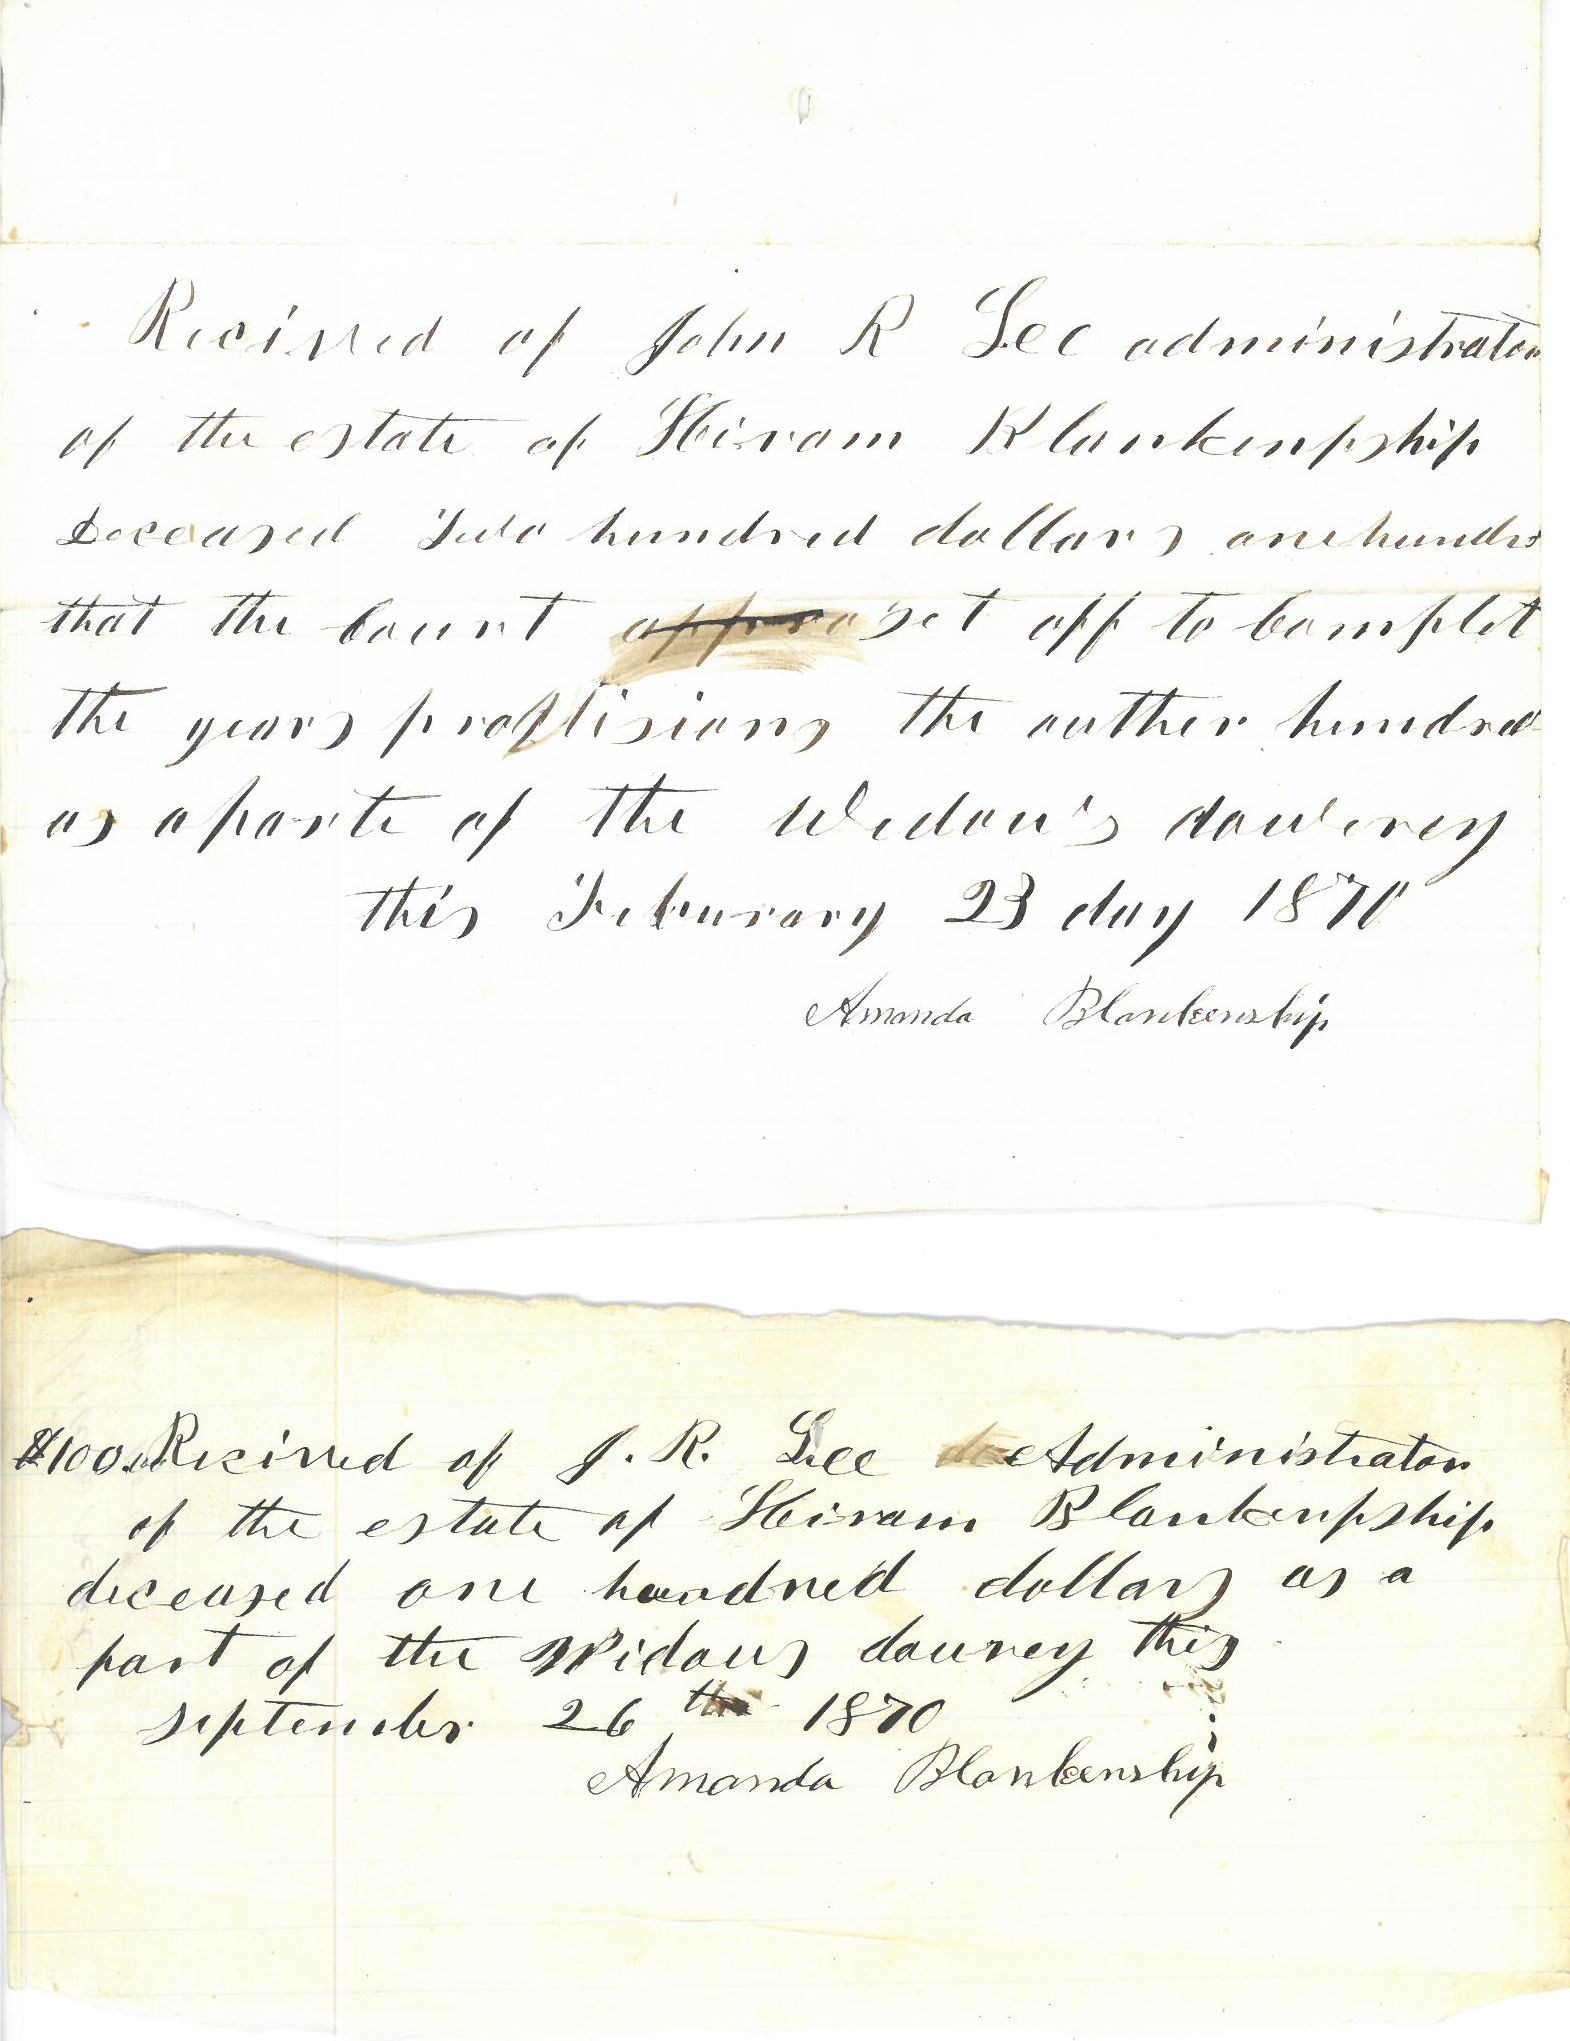 Recieved of John R Lee administrator
of the estate of Hiram Blankenpship
Deceased Two hundred dollars one hundre
that the Court appro set off to Complet
the years provisions the outher hundred
as a parte of the Widow's dowerey
this Feburary 23 day 1870
Amanda Blankenship
$100.00 Recieved of J. R. Lee Administrator
of the estate of Hiram Blankenpship
deceased one hundred dollars as a
part of the Widows dowrey this
september 26 th 1870
Amanda Blankenship